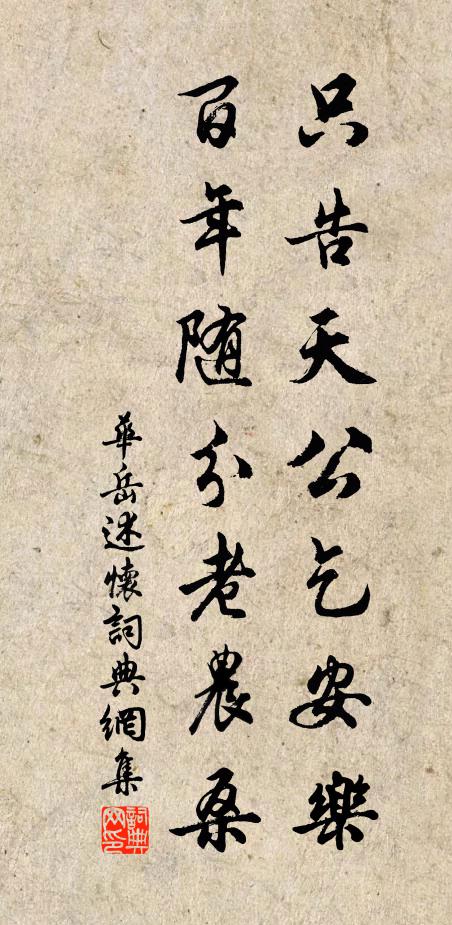 只告天公乞安樂
百年随分老農桑
華岳述懷詞典網集
詞典网印